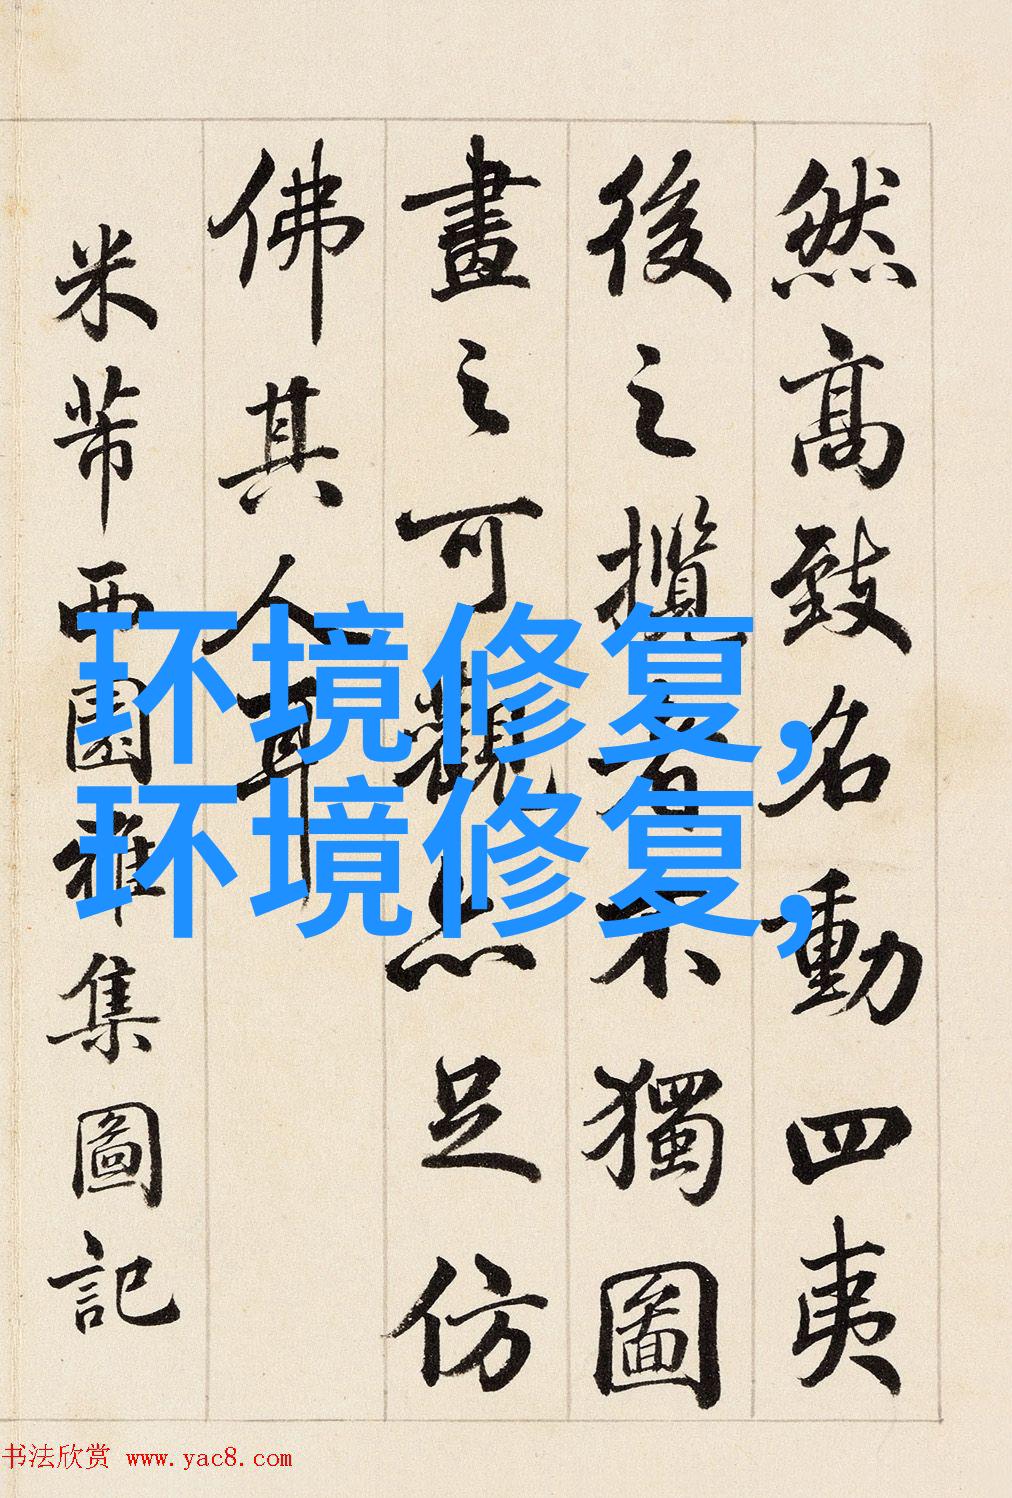 然高致名動四夷
後之攬者不獨圖
畫之可觀亦足仿
佛其人耳
米芾西園雅集圖記
环境修复,
环境修复,
书法欣赏 www.yac8.com